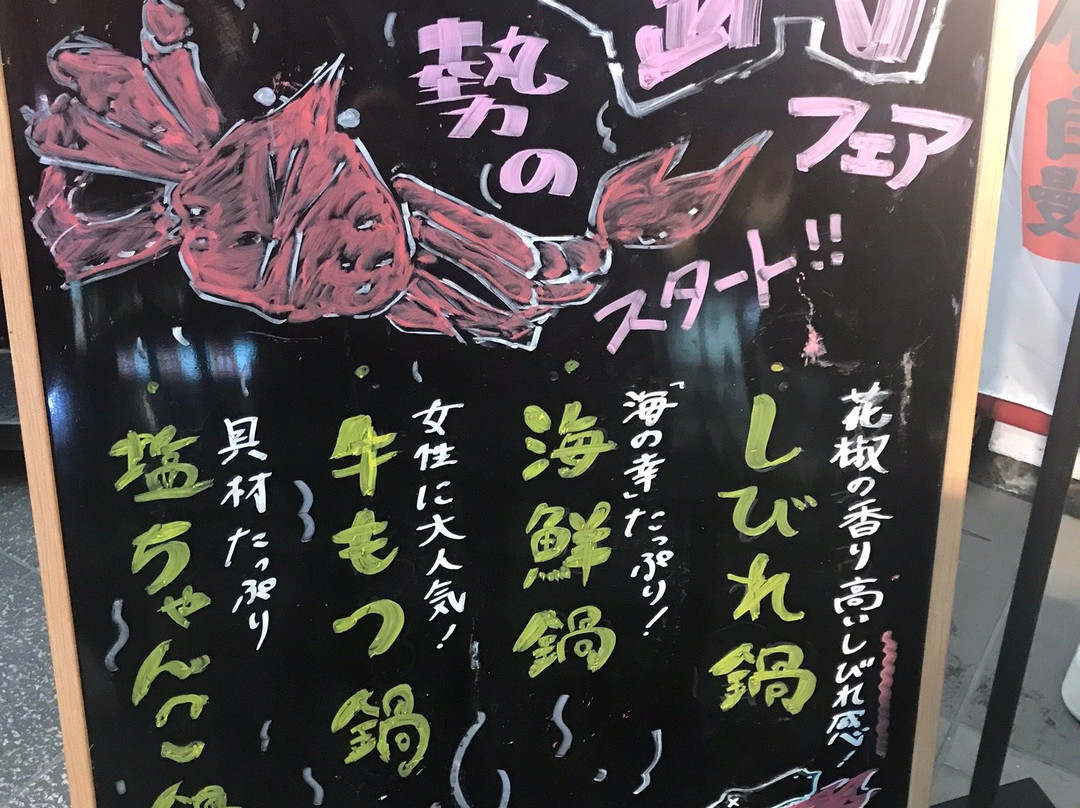 勢の
フェア
スタート!!
花椒の香り高いしびれ感!
しびれ鍋
「海の幸」たっぷり!
海鮮鍋
女性に大人気!
牛もつ鍋
具材たっぷり
塩ちゃんこ鍋
自慢